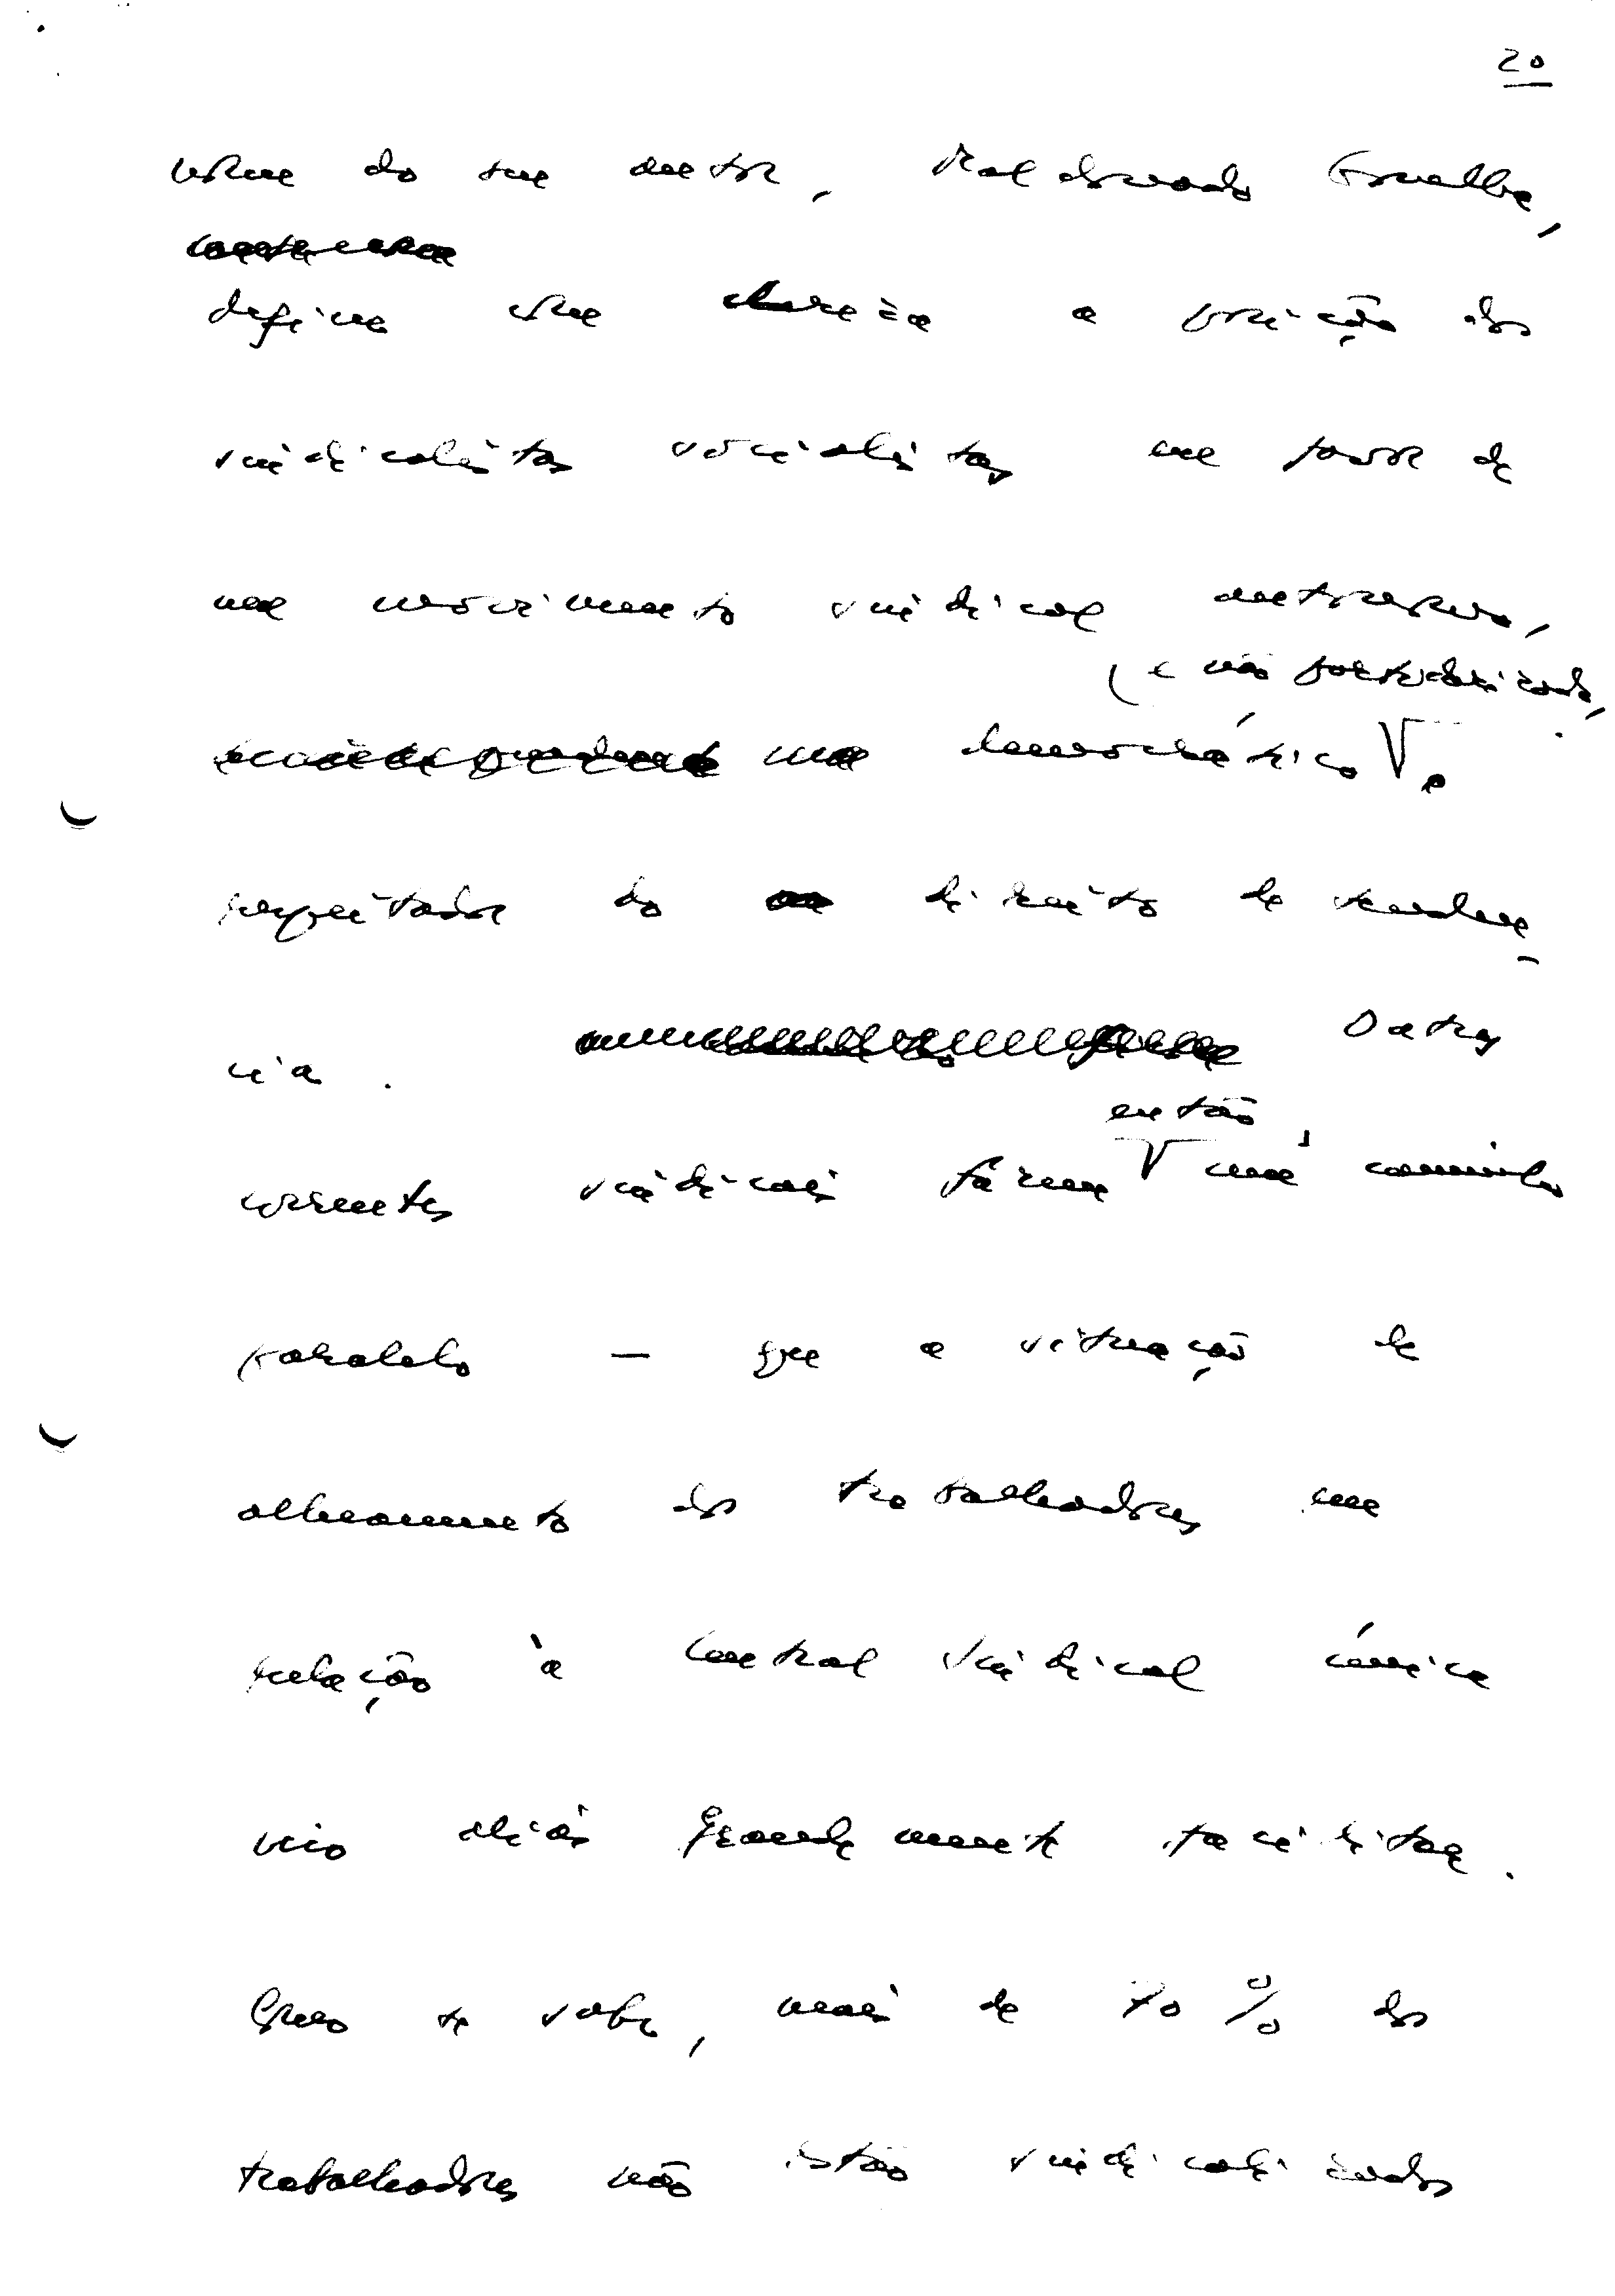 20
nome do seu autor, Kalidás Barreto,
define com clareza a posição dos
sindicalistas socialistas em favor de
um movimento sindical autónomo,
(e não partidarizado,
democrático e
respeitador do direito de tendên-
cia. Outras
correntes sindicais
então
fazem um caminho
paralelo — que a situação de
alheamento dos trabalhadores em
relação à Central Sindical única
veio aliás grandemente facilitar.
Como se sabe, mais de 70% dos
trabalhadores não estão sindicalizados